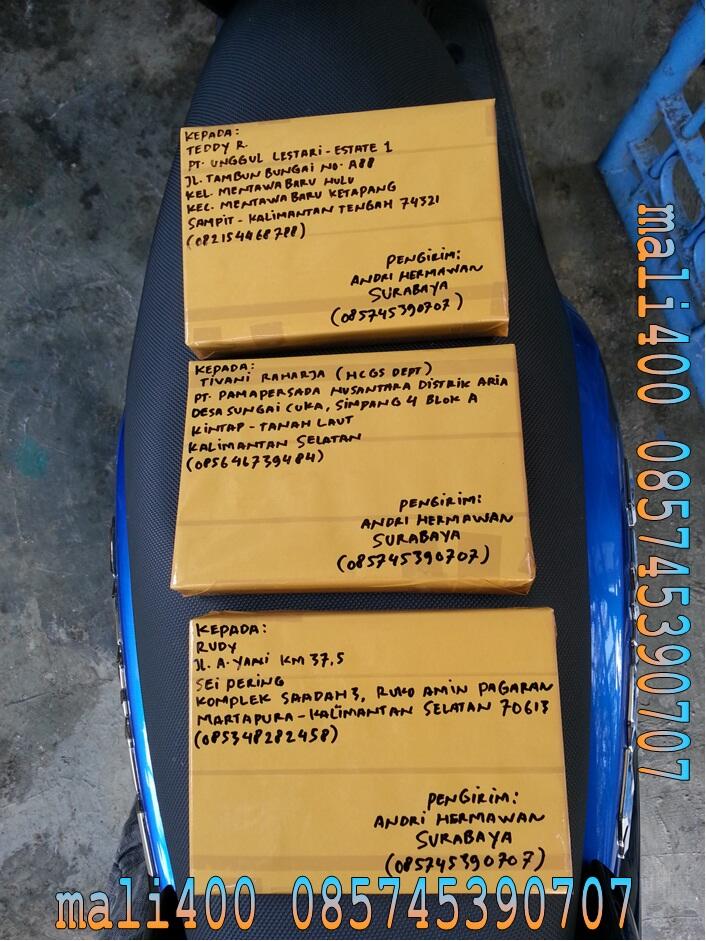 KEPADA:
TEDDY R.
PT. UNGGUL LESTARI - ESTATE 1
JL. TAMBUN BUNGAI NO. A88
KEL. MENTAWA BARU HULU
KEC. MENTAWA BARU KETAPANG
SAMPIT - KALIMANTAN TENGAH 74321
(082154468788)
PENGIRIM:
ANDRI HERMAWAN
SURABAYA
(085745390707)
KEPADA:
TIVANI RAHARJA (HCGS DEPT)
PT. PAMAPERSADA NUSANTARA DISTRIK ARIA
DESA SUNGAI CUKA, SIMPANG 4 BLOK A
KINTAP - TANAH LAUT
KALIMANTAN SELATAN
(085646739484)
PENGIRIM:
ANDRI HERMAWAN
SURABAYA
(085745390707)
KEPADA:
RUDY
JL. A. YANI KM 37,5
SEI PERING
KOMPLEK SAADAH 3, RUKO AMIN PAGARAN
MARTAPURA - KALIMANTAN SELATAN 70613
(085348282458)
PENGIRIM:
ANDRI HERMAWAN
SURABAYA
(085745390707)
mali400 085745390707
mali400 085745390707